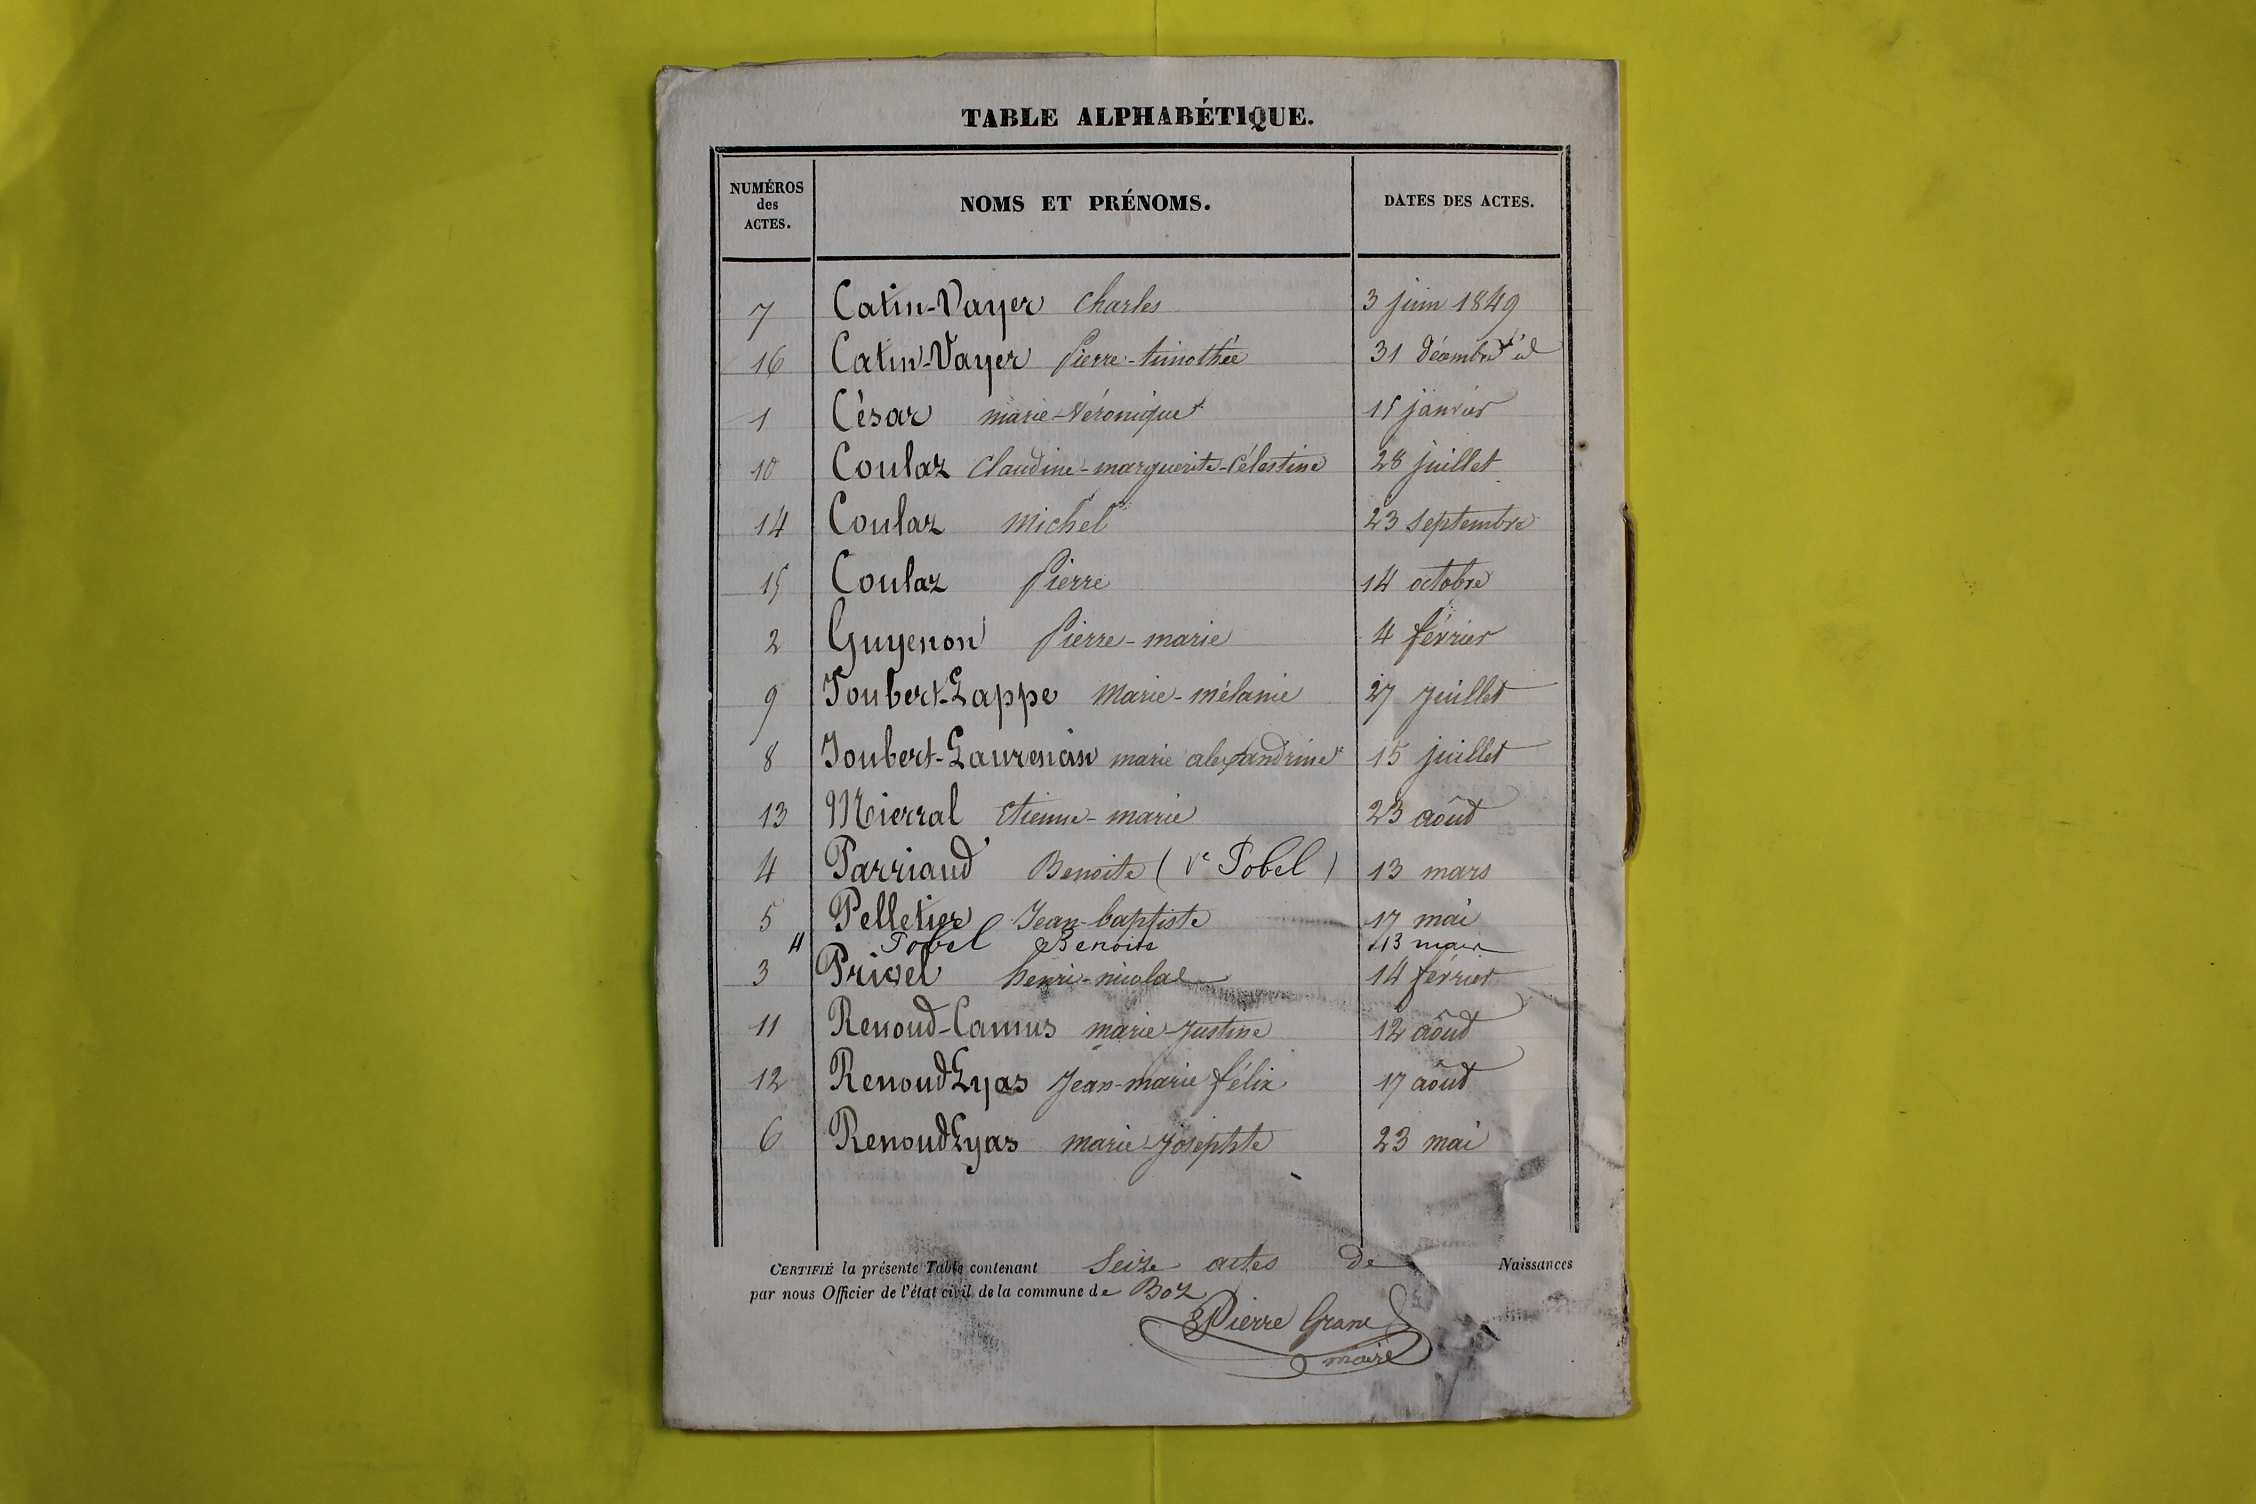 TABLE ALPHABÉTIQUE.
NUMÉROS des ACTES. NOMS ET PRÉNOMS. DATES DES ACTES.
7 Catin-Vayer Charles 3 juin 1849
16 Catin-Vayer Pierre-timothée 31 décembre id
1 César marie-Véronique 15 janvier
10 Coulaz Claudine-marguerite-Célestine 28 juillet
14 Coulaz Michel 23 septembre
15 Coulaz Pierre 14 octobre
2 Guyenon Pierre-marie 4 février
9 Joubert-Lappe Marie-mélanie 27 juillet
8 Joubert-Laurencin marie alexandrine 15 juillet
13 Mierral etienne-marie 23 août
4 Parriaud Benoite (Ve Pobel) 13 mars
5 Pelletier Jean-baptiste 17 mai
4 Pobel Benoite 13 mars
3 Privel henri-nicolas 14 février
11 Renoud-Camus marie-Justine 12 août
12 Renoud Lyas Jean-marie félix 17 août
6 Renoud Lyas marie-josephte 23 mai
CERTIFIÉ la présente Table contenant Seize actes de Naissances
par nous Officier de l'état civil de la commune de Boz
Pierre Grand
maire